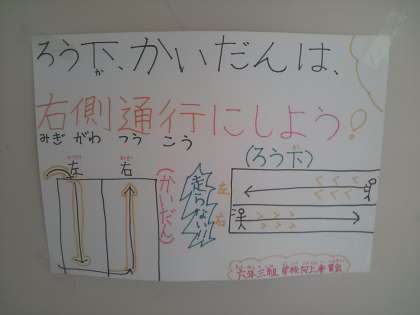 ろう下、かいだんは、
か
右側通行にしよう!
みぎ がわ つう こう
(ろう下)
左 右
(かいだん)
走らない!!!
左
右
六年三組 学校向上委員会